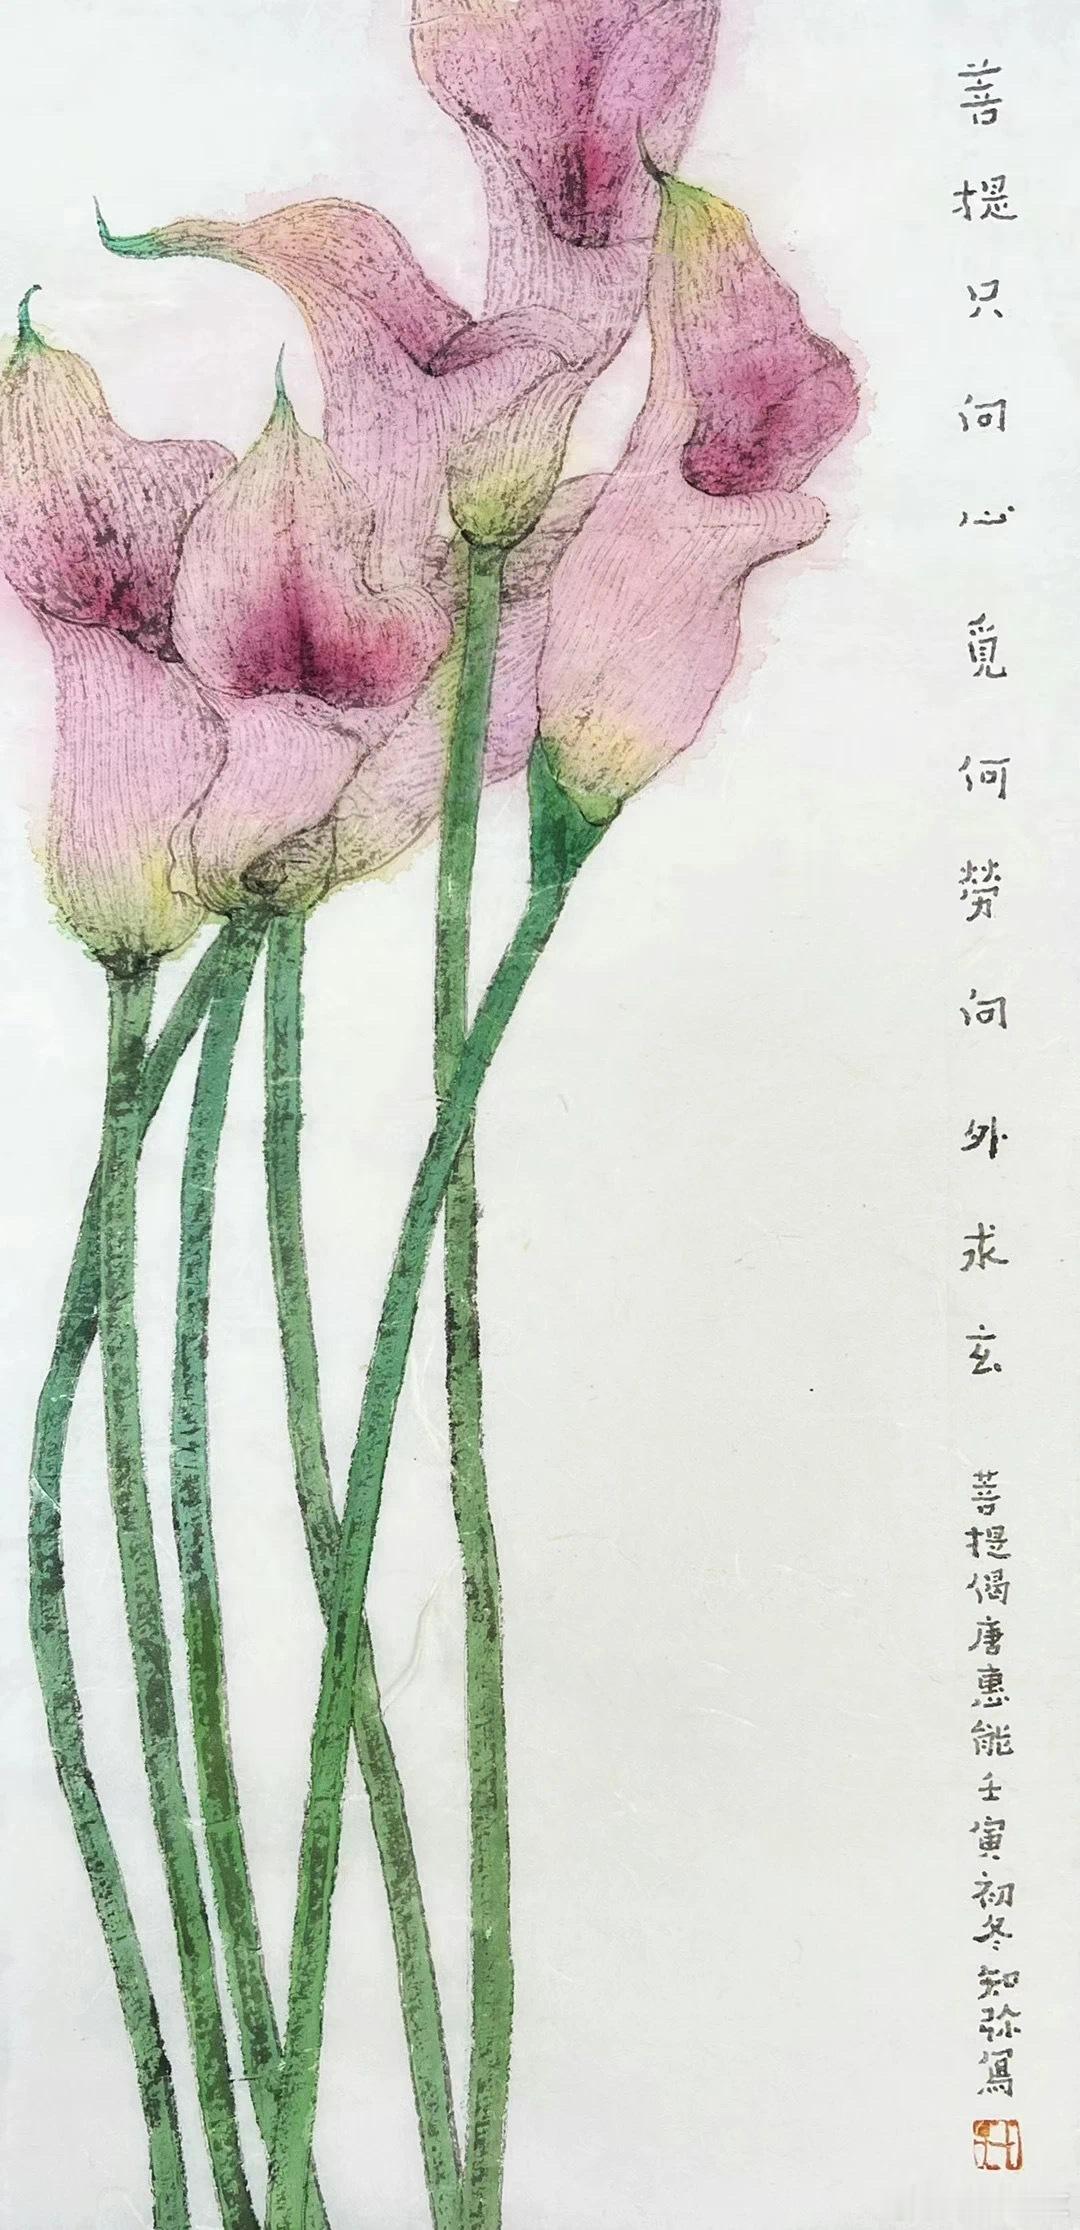 菩提只向心覓何勞向外求玄
菩提偈唐惠能壬寅初冬知弥寫